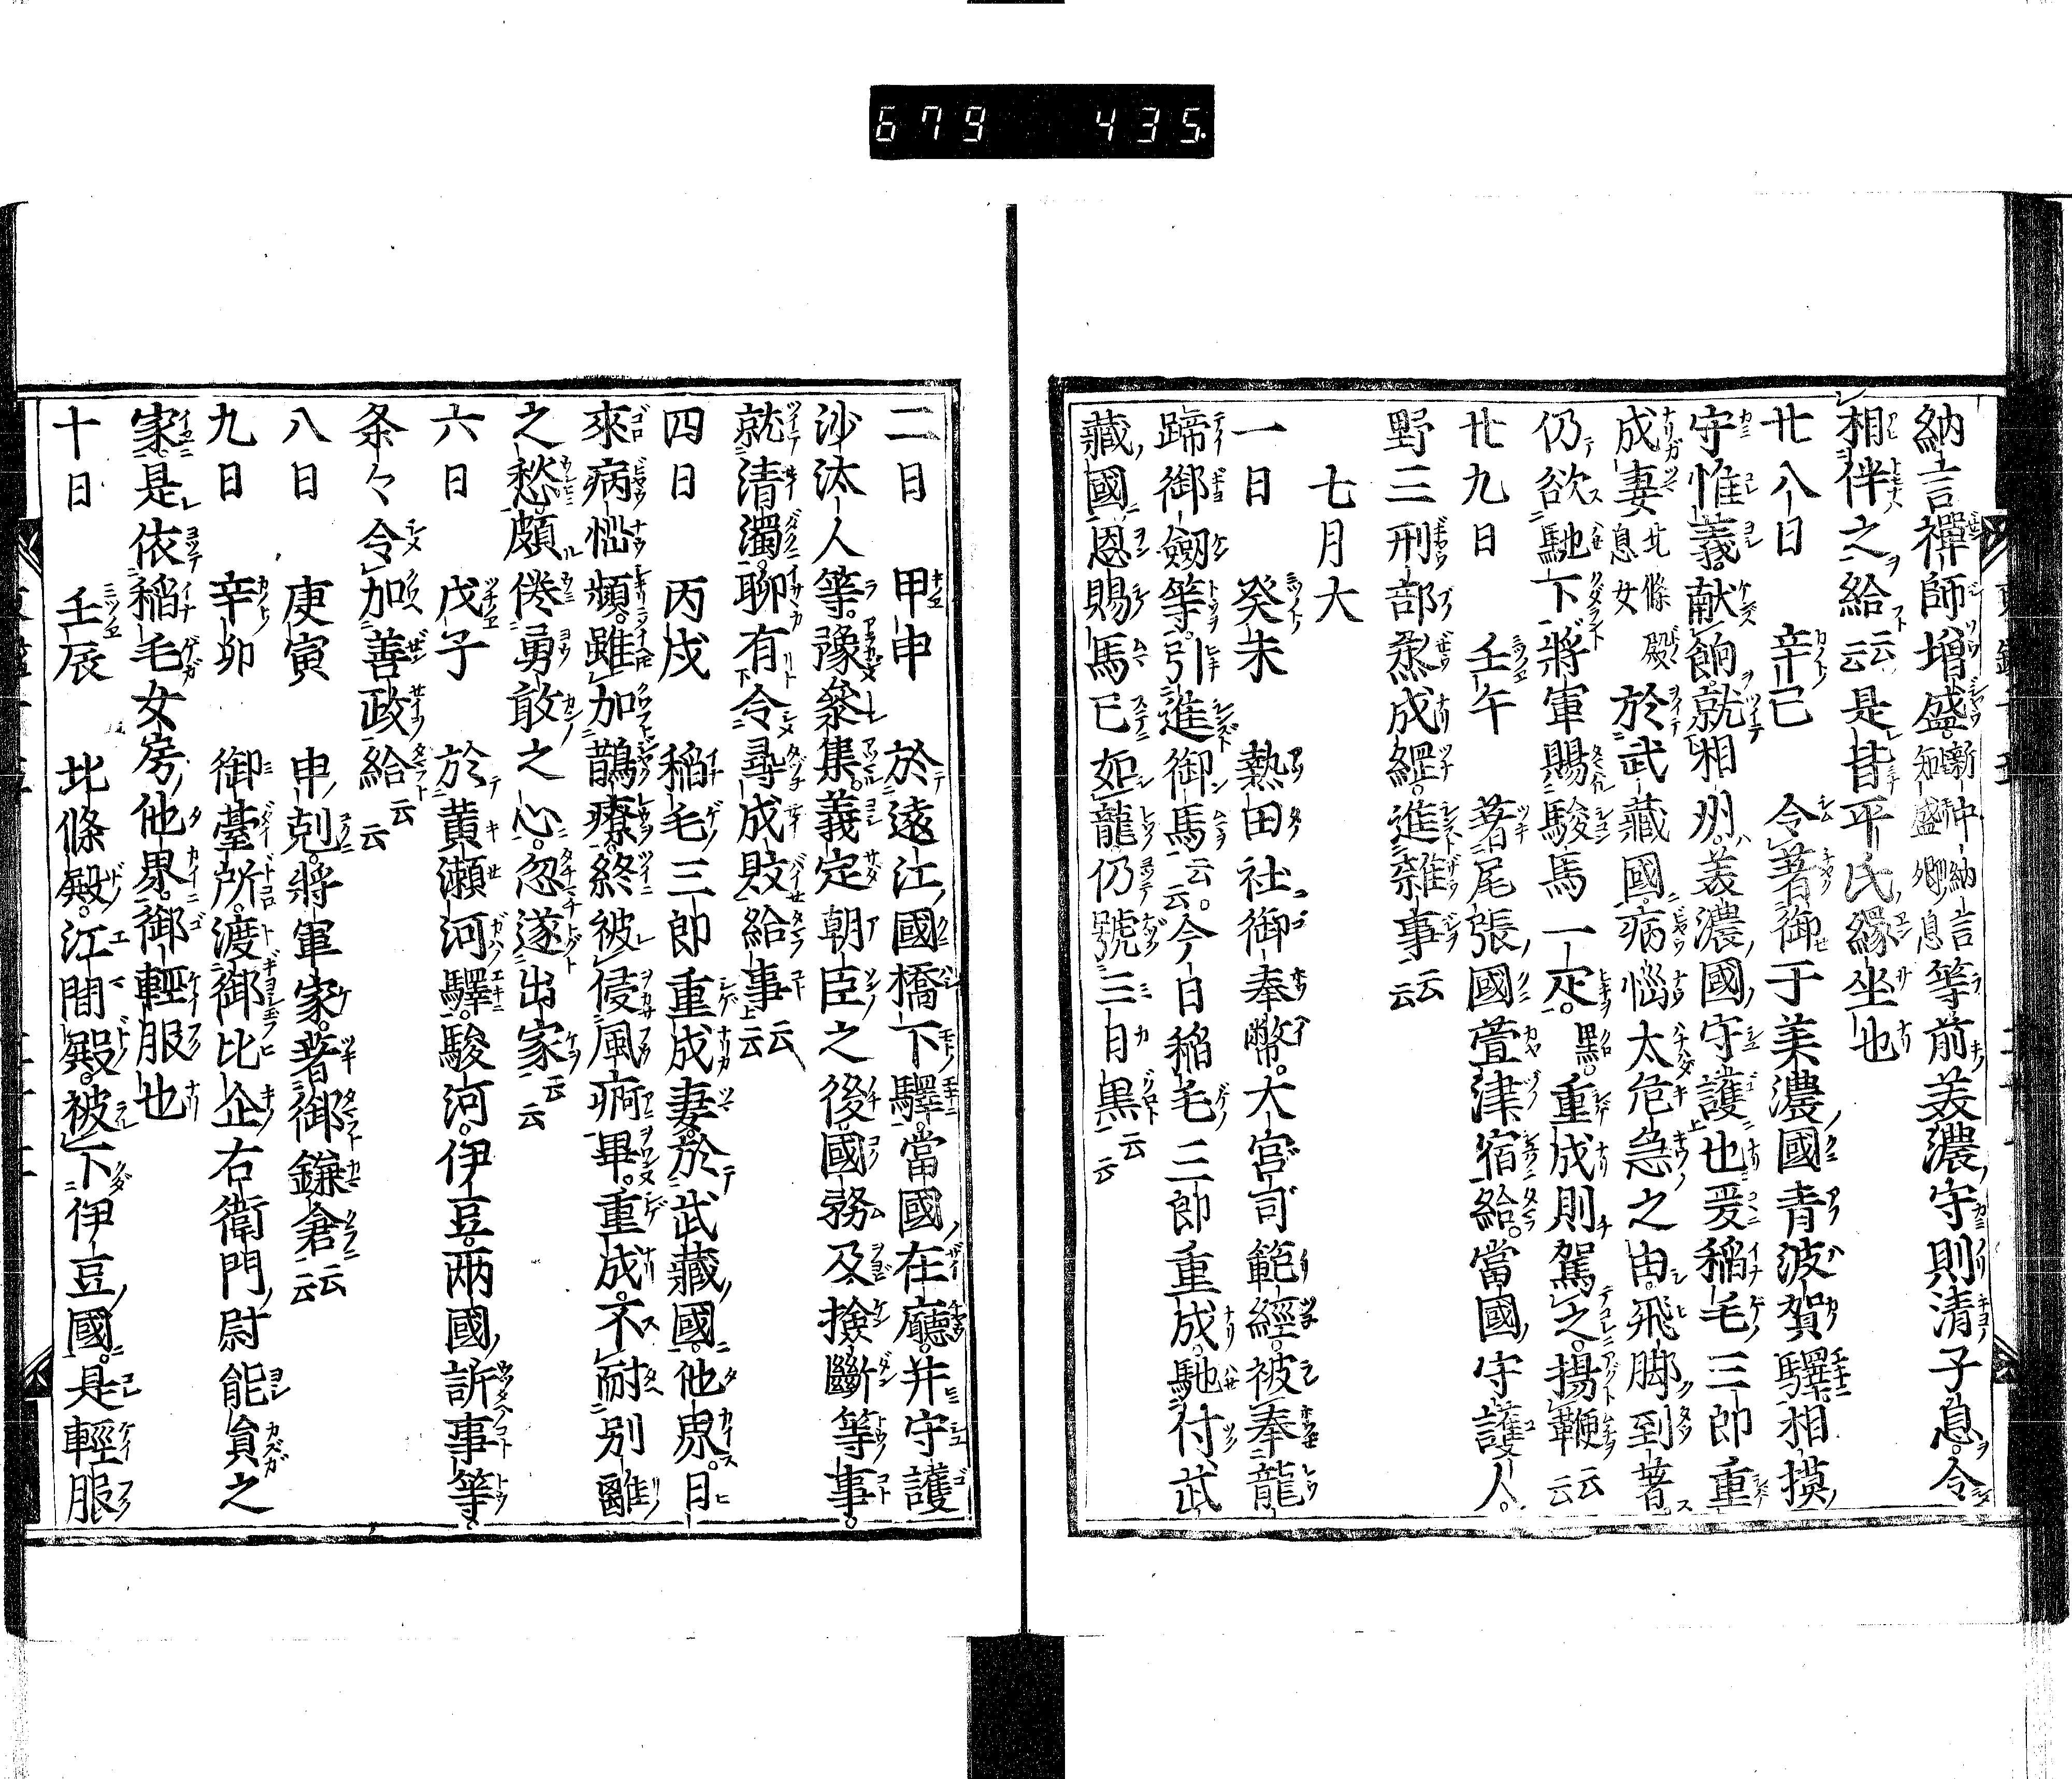 679 435.
納言禪師増盛新中納言知盛卿息等前美濃守則清子息令
相伴之給云云是皆平氏縁坐也
廿八日 辛巳 令著御于美濃國青波賀驛相摸
守惟義献餉就相州美濃國守護也爰稲毛三郎重
成妻北條殿息女於武藏國病惱太危急之由飛脚到著
仍欲馳下將軍賜駿馬一疋黒重成則駕之揚鞭云云
廿九日 壬午 著尾張國萱津宿給當國守護人
野三刑部烝成經進雜事云云
七月大
一日 癸未 熱田社御奉幣大宮司範經被奉龍
蹄御劔等引進御馬云云今日稲毛三郎重成馳付武
藏國恩賜馬已如龍仍號三日黒云云
二日 甲申 於遠江國橋下驛當國在廳并守護
沙汰人等豫參集義定朝臣之後國務及撿斷等事
就清濁聊有令尋成敗給事云云
四日 丙戌 稲毛三郎重成妻於武藏國他界日
來病惱頻雖加鵲療終被侵風痾畢重成不耐別離
之愁頗倦勇敢之心忽遂出家云云
六日 戊子 於黄瀬河驛駿河伊豆兩國訴事等
条々令加善政給云云
八日 庚寅 申剋將軍家著御鎌倉云云
九日 辛卯 御臺所渡御比企右衛門尉能貟之
家是依稲毛女房他界御輕服也
十日 壬辰 北條殿江間殿被下伊豆國是輕服